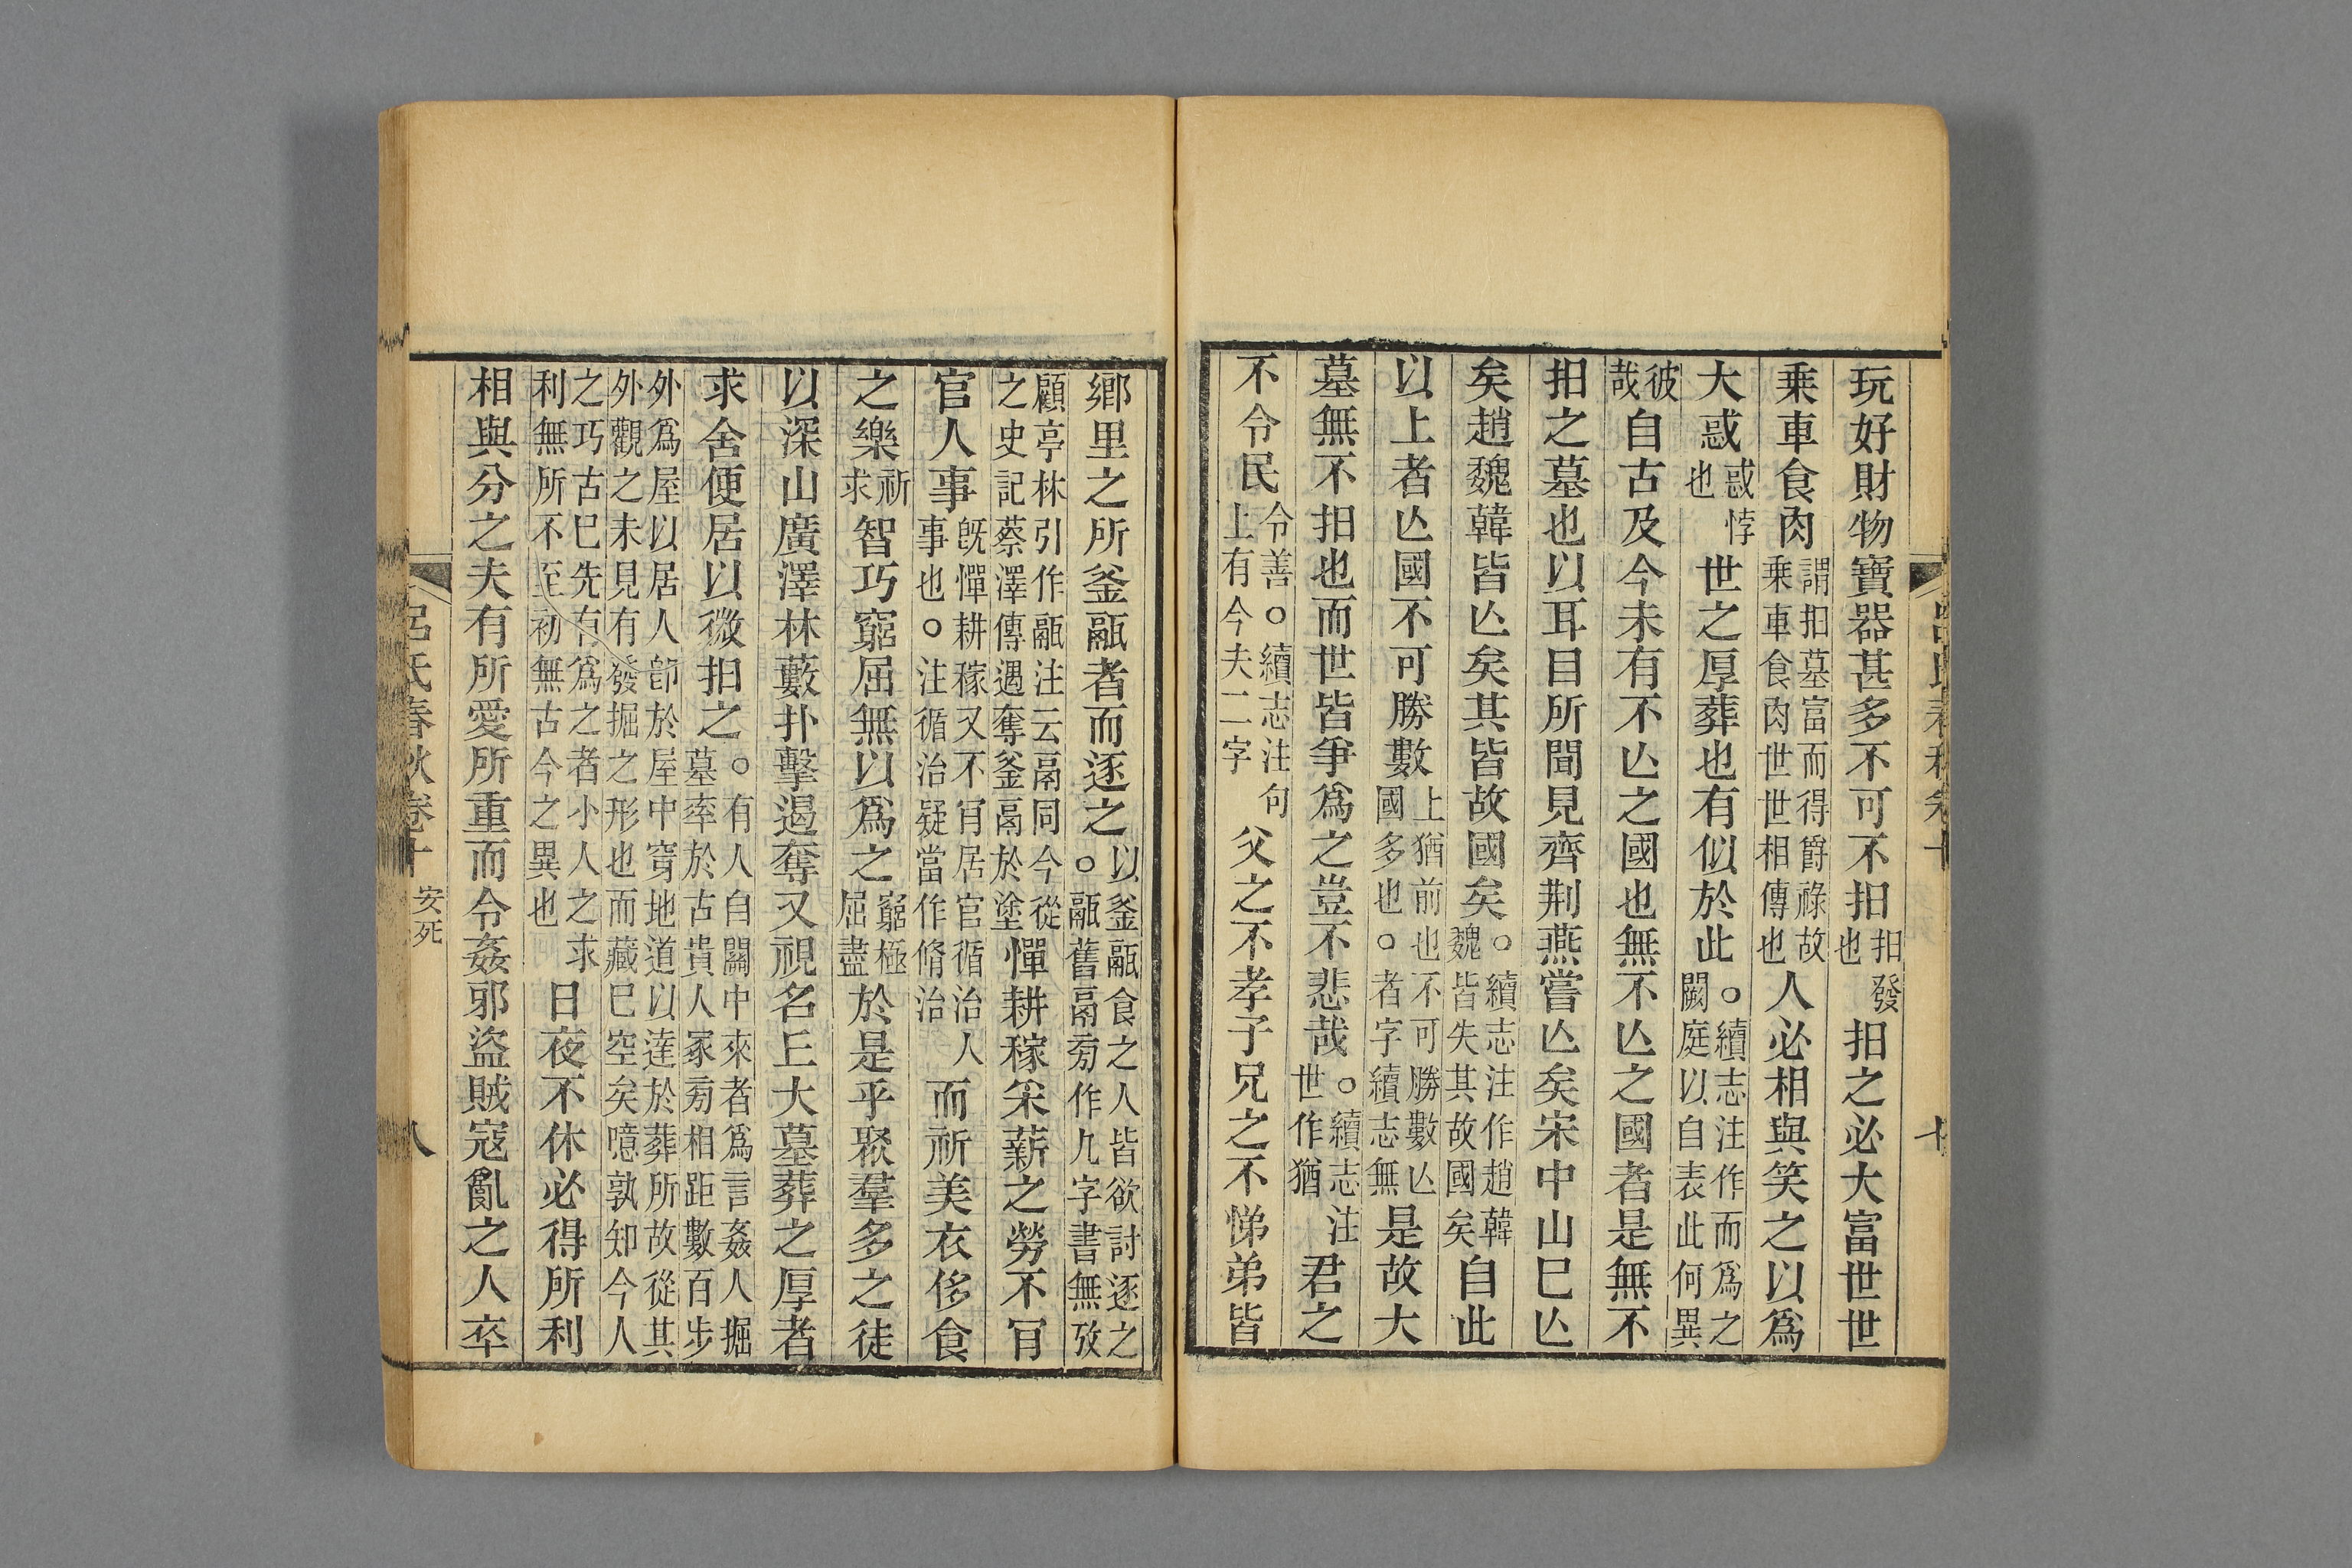 玩好財物寶器甚多不可不抇抇發也抇之必大富世世
乘車食肉謂抇墓富而得爵祿故乘車食肉世世相傳也人必相與笑之以爲
大惑惑悖也世之厚葬也有似於此○續志注作而爲之闕庭以自表此何異
彼哉自古及今未有不亾之國也無不亾之國者是無不
抇之墓也以耳目所聞見齊荆燕嘗亾矣宋中山巳亾
矣趙魏韓皆亾矣其皆故國矣○續志注作趙韓魏皆失其故國矣自此
以上者亾國不可勝數上猶前也不可勝數亾國多也○者字續志無是故大
墓無不抇也而世皆爭爲之豈不悲哉○續志注世作猶君之
不令民令善○續志注句上有今夫二字父之不孝子兄之不悌弟皆
鄉里之所釜鬲瓦者而逐之以釜鬲瓦食之人皆欲討逐之○鬲瓦舊鬲旁作几字書無攷
顧亭林引作鬲瓦注云鬲同今從之史記蔡澤傳遇奪釜鬲於塗憚耕稼采薪之勞不肎
官人事旣憚耕稼又不肎居官循治人事也○注循治疑當作脩治而祈美衣侈食
之樂祈求智巧窮屈無以爲之窮極屈盡於是乎聚羣多之徒
以深山廣澤林藪扑擊遏奪又視名丘大墓葬之厚者
求舍便居以微抇之○有人自關中來者爲言姦人掘墓率於古貴人冢旁相距數百步
外爲屋以居人卽於屋中穿地道以達於葬所故從其外觀之未見有發掘之形也而藏巳空矣噫孰知今人
之巧古巳先有爲之者小人之求利無所不至初無古今之異也日夜不休必得所利
相與分之夫有所愛所重而令姦邪盜賊寇亂之人卒
呂氏春秋卷十 安死 八